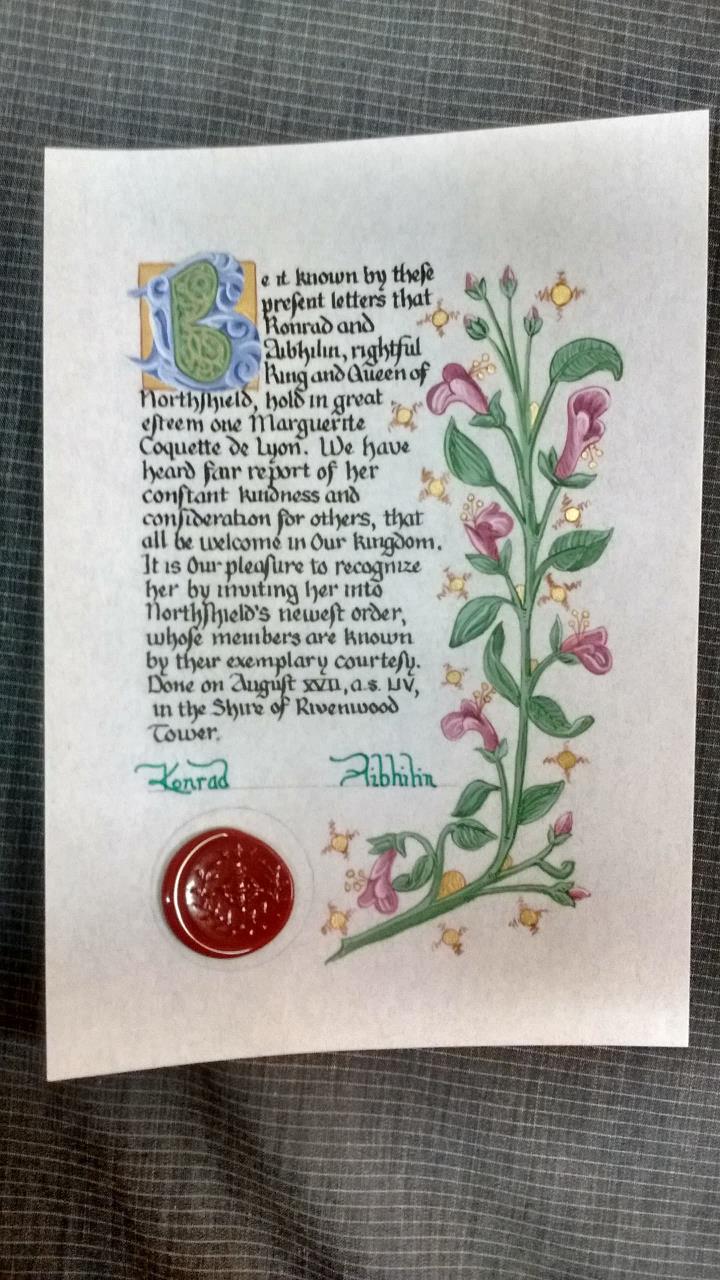 Be it known by theſe
preſent letters that
Konrad and
Aibhilin, rightful
King and Queen of
Northſhield, hold in great
eſteem one Marguerite
Coquette de Lyon. We have
heard fair report of her
conſtant kindneſs and
conſideration for others, that
all be welcome in Our kingdom.
It is Our pleaſure to recognize
her by inviting her into
Northſhield's newest order,
whoſe members are known
by their exemplary courteſy.
Done on August XVII, a.s. LIV,
in the Shire of Rivenwood
Tower.
Konrad Aibhilin